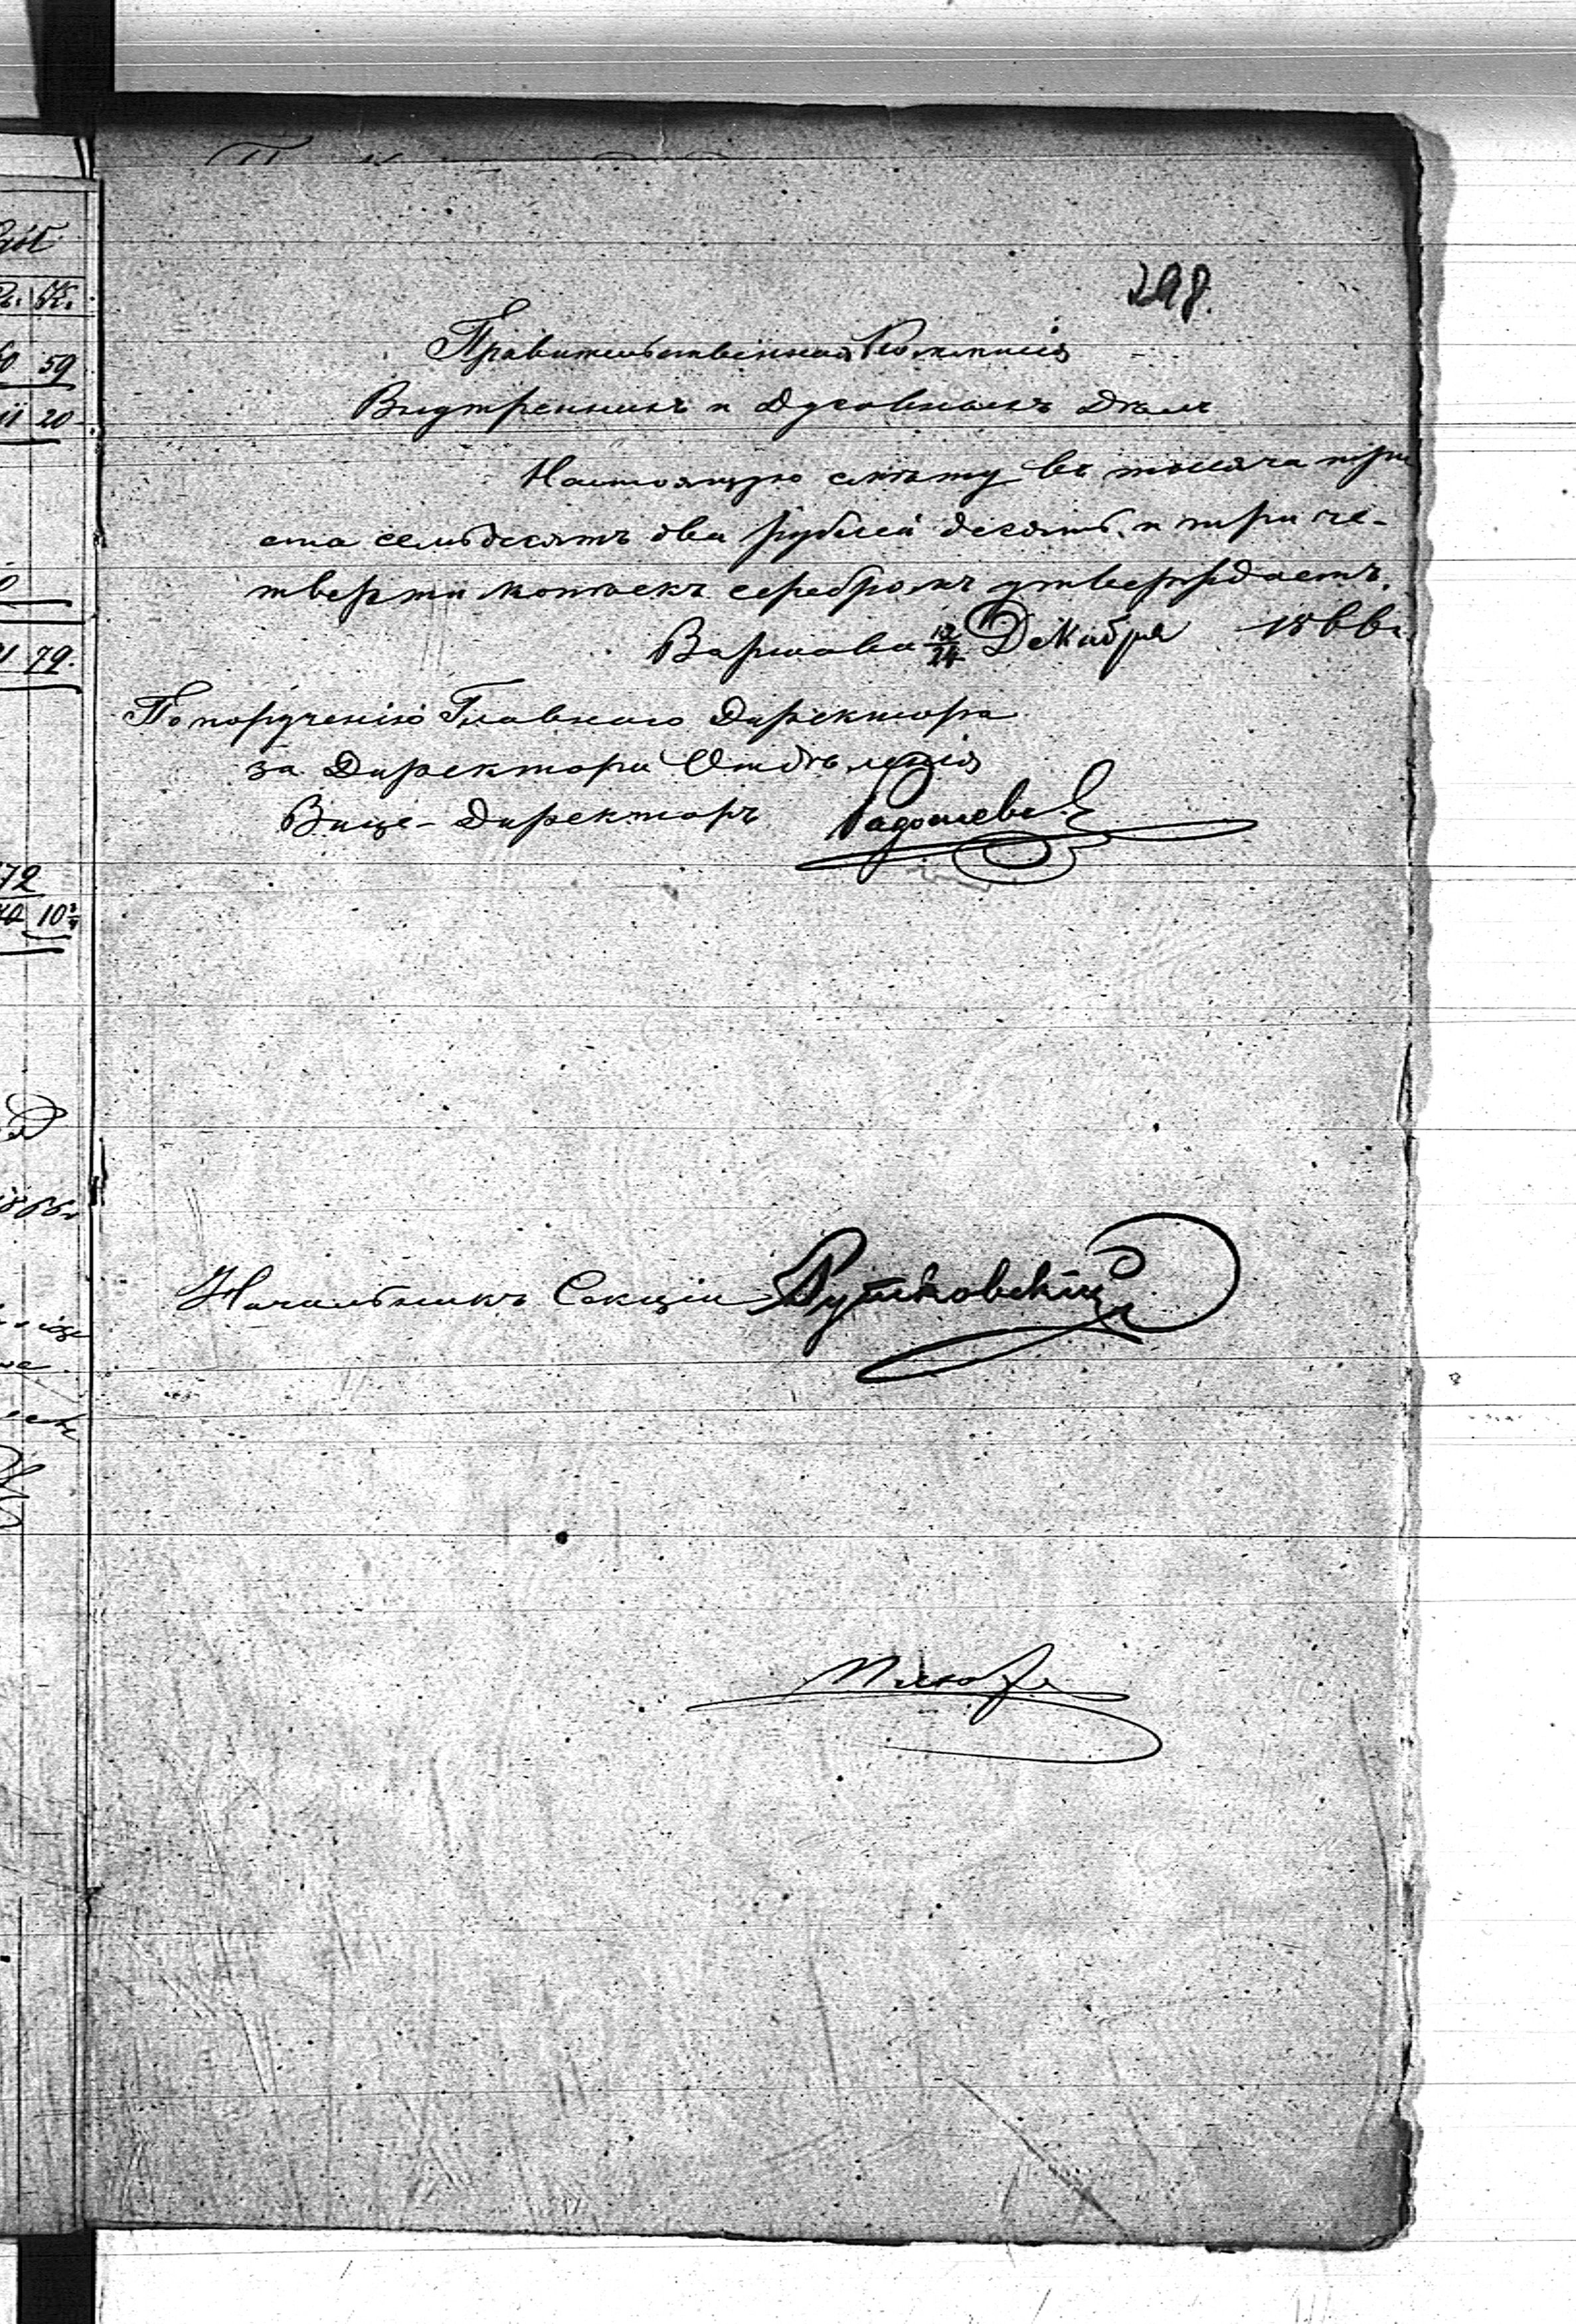 298.
Правительственная Коммисія
Внутреннихъ и Духовныхъ Дѣлъ
Настоящую смѣту въ тысяча три
ста семьдесятъ два рублей десять и три че-
тверти копѣекъ серебромъ утверждаетъ.
Варшава 12/24 Декабря 1866 г.
По порученію Главнаго Директора
за Директора Отдѣленія
Вице-Директоръ
Начальникъ Секціи Рутковскій
К.
59
20
79.
72
10¾